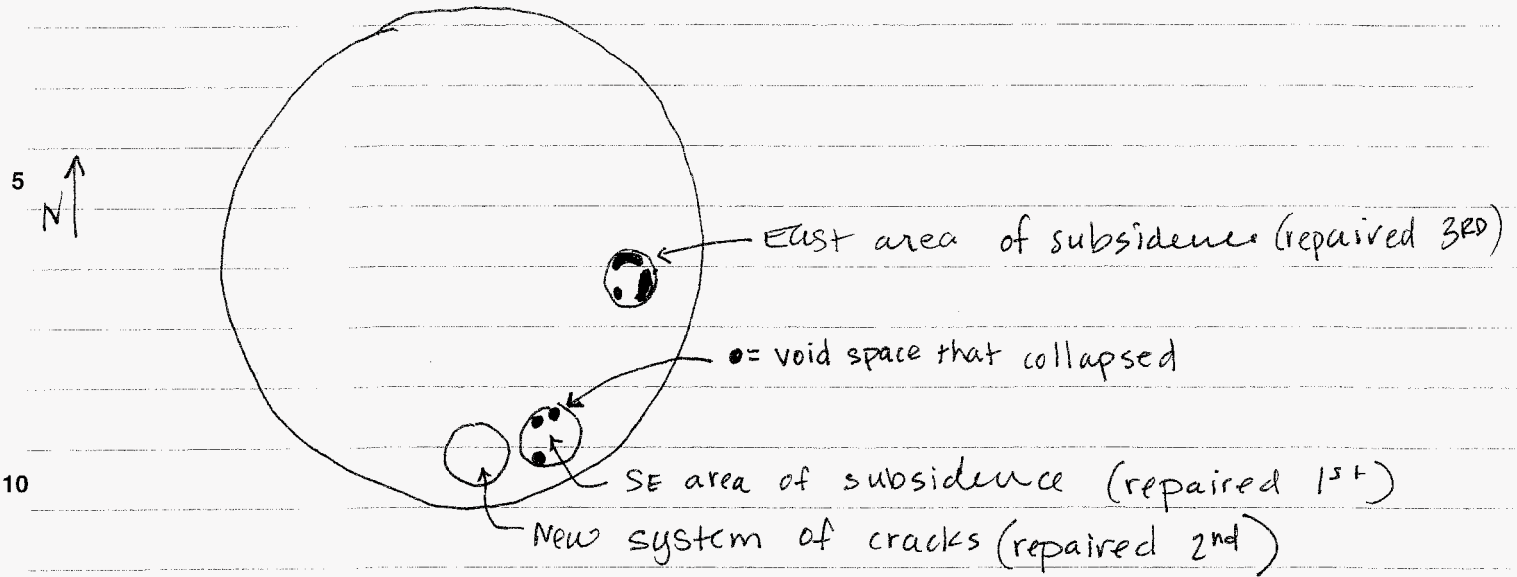 5
N
East area of subsidence (repaired 3RD)
●= void space that collapsed
10
SE area of subsidence (repaired 1st)
New system of cracks (repaired 2nd)